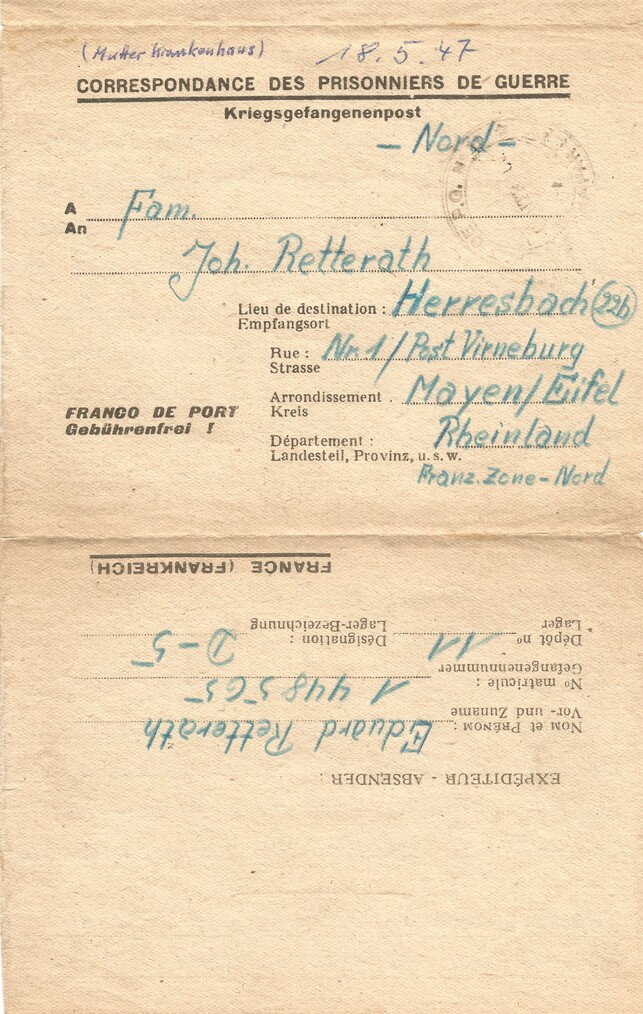 (Mutter Krankenhaus) 18.5.47
CORRESPONDANCE DES PRISONNIERS DE GUERRE
Kriegsgefangenenpost
- Nord -
A Fam.
An
Joh. Retterath
Lieu de destination : Herresbach (22b)
Empfangsort
Rue : Nr. 1 / Post Virneburg
Strasse
Arrondissement . Mayen / Eifel
Kreis
FRANCO DE PORT
Gebührenfrei !
Département : Rheinland
Landesteil, Provinz, u. s. w.
Franz. Zone - Nord
EXPÉDITEUR - ABSENDER :
NOM et PRÉNOM : Eduard Retterath
Vor- und Zuname
No matricule : 1 448 565
Gefangenennummer
Dépôt no 11 Désignation : D-5
Lager Lager-Bezeichnung
FRANCE (FRANKREICH)